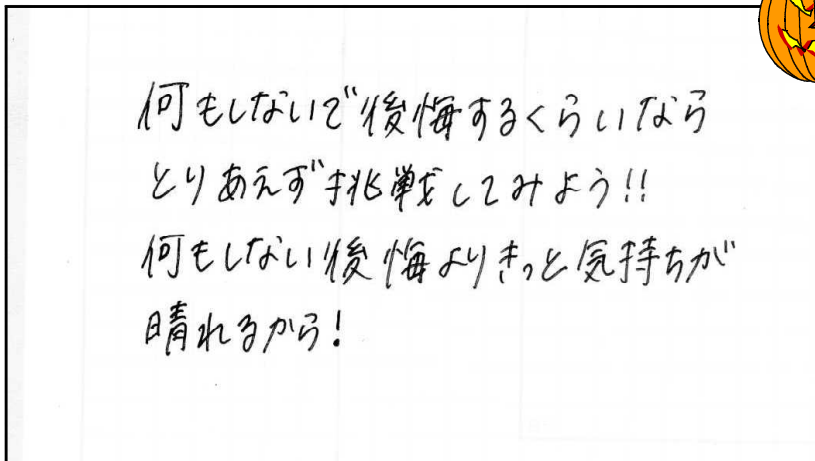 何もしないで後悔するくらいなら
とりあえず挑戦してみよう!!
何もしない後悔よりきっと気持ちが
晴れるから!